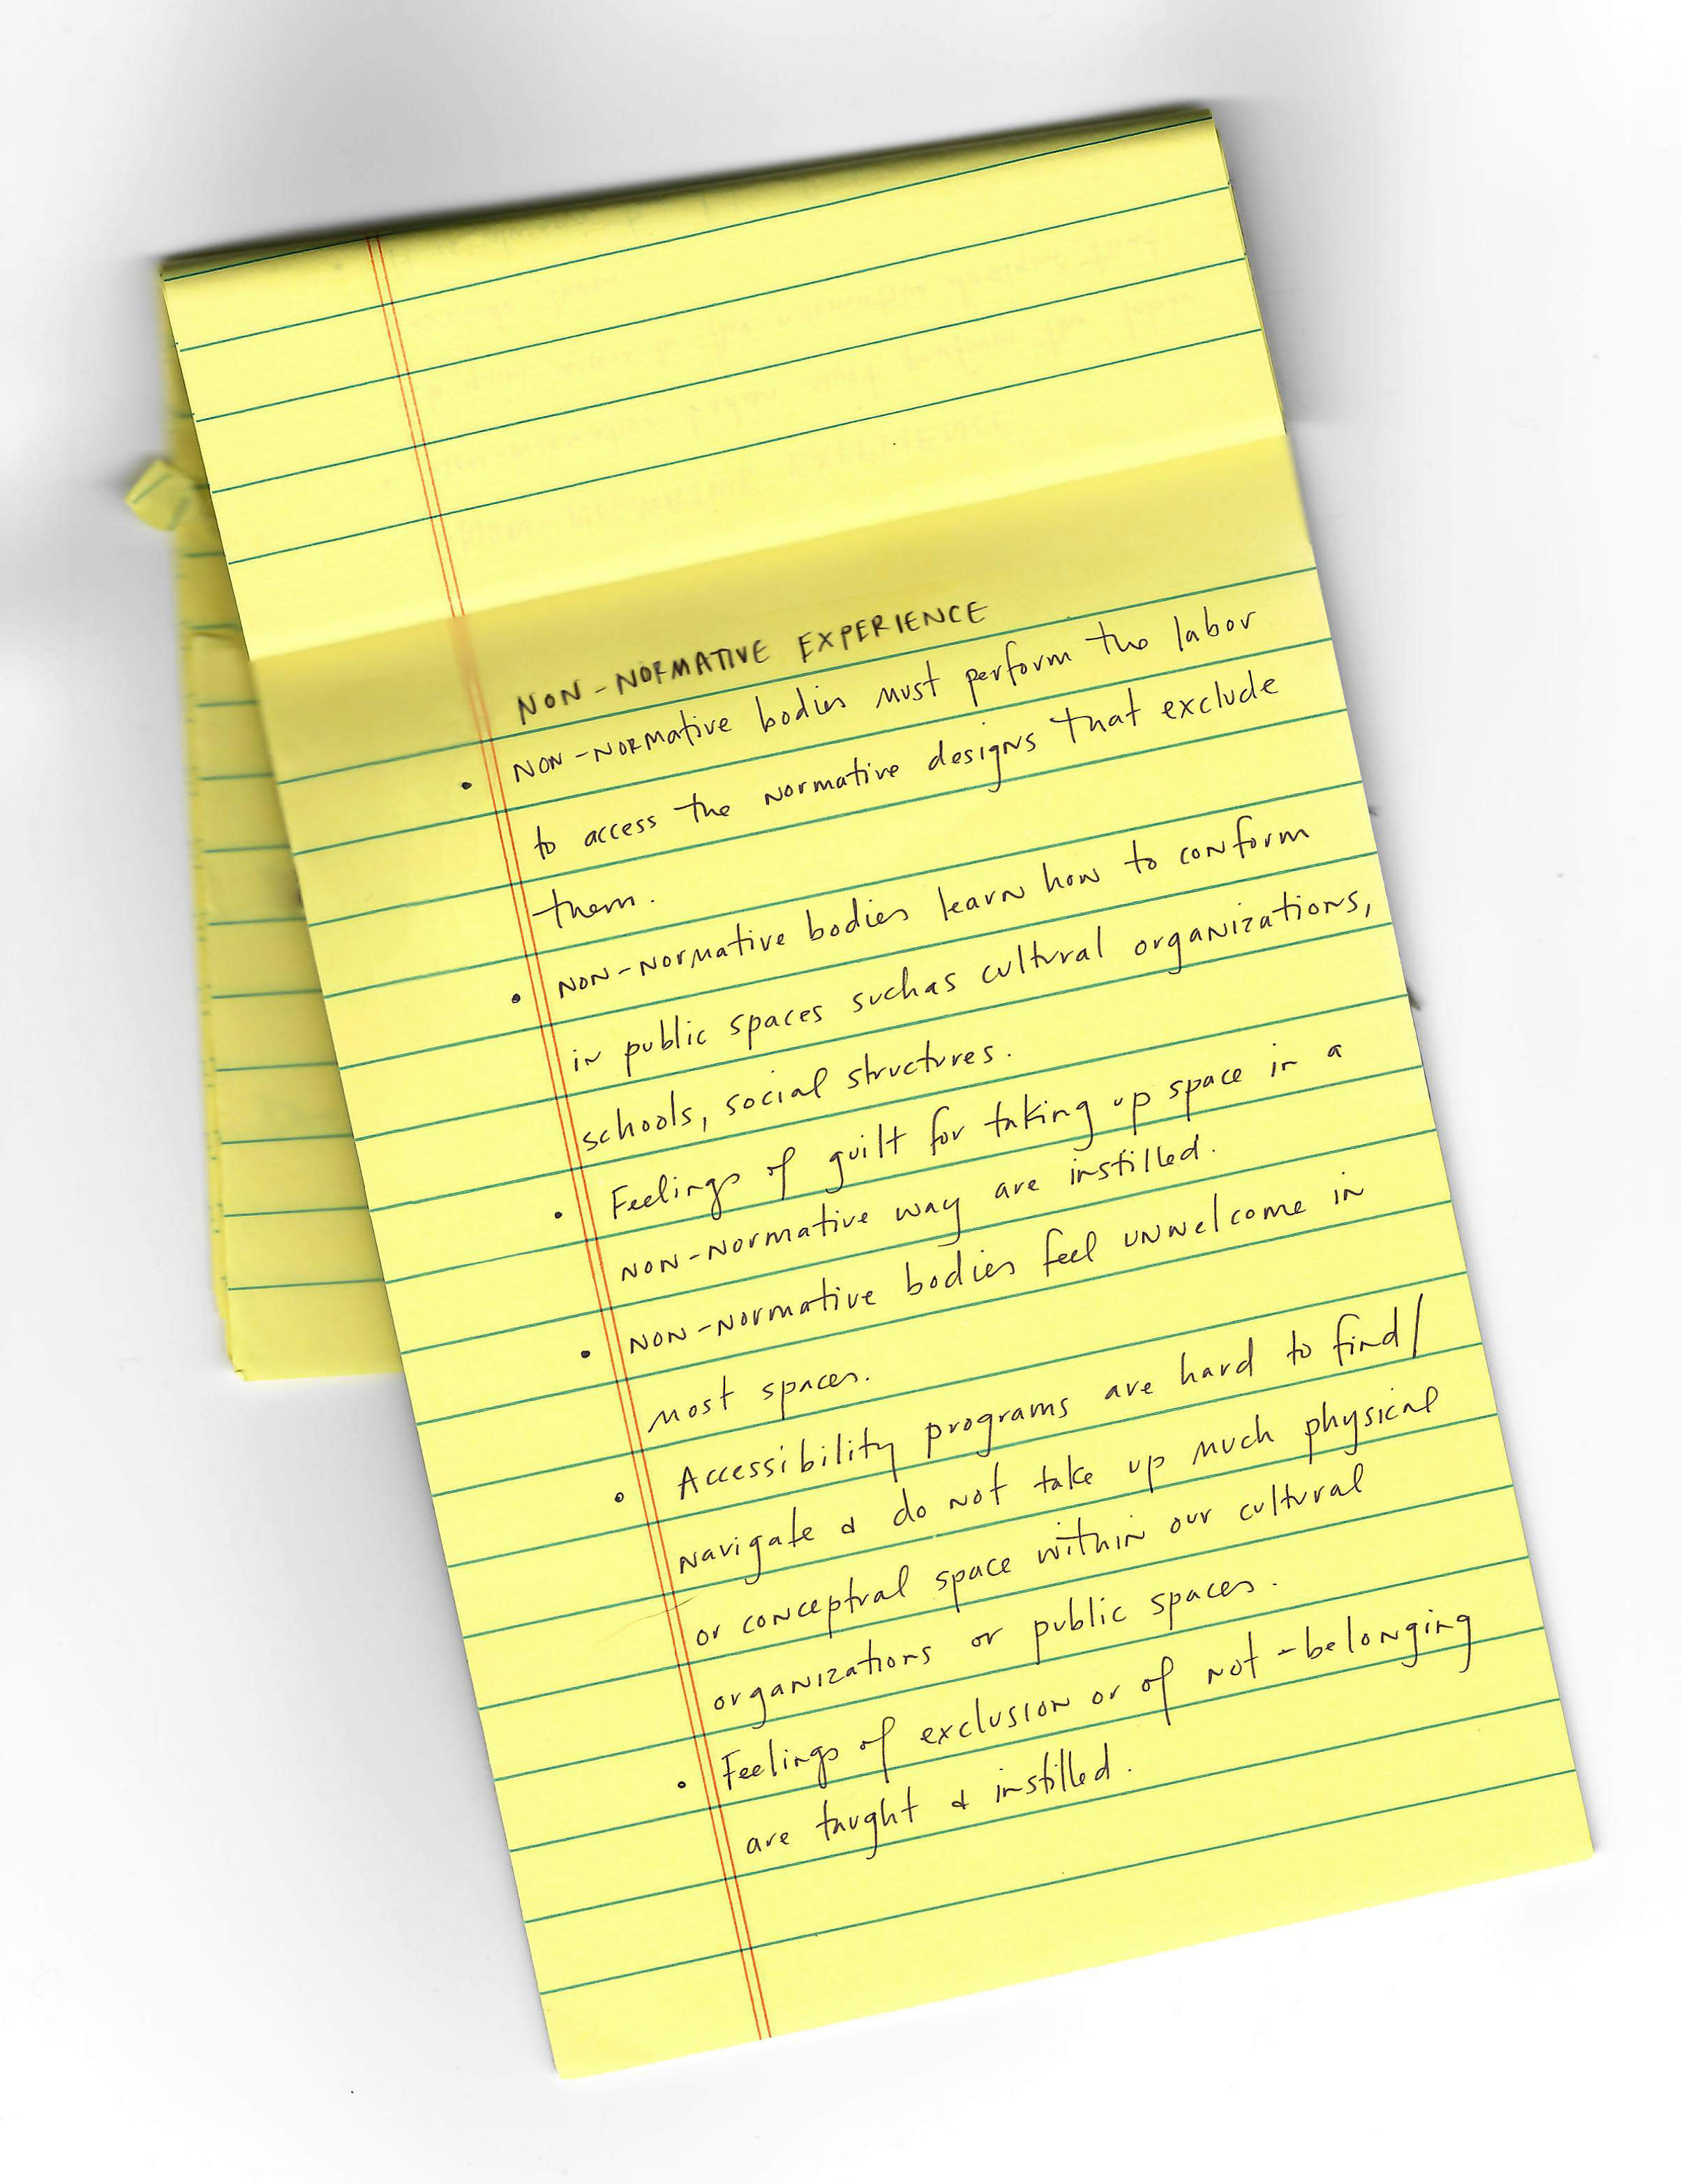 NON-NORMATIVE EXPERIENCE
• NON-NORMATIVE bodies must perform the labor
to access the normative designs that exclude
them.
• NON-NORMATIVE bodies learn how to conform
in public spaces such as cultural organizations,
schools, social structures.
• Feelings of guilt for taking up space in a
NON-NORMATIVE way are instilled.
• NON-NORMATIVE bodies feel unwelcome in
most spaces.
• Accessibility programs are hard to find/
navigate & do not take up much physical
or conceptual space within our cultural
organizations or public spaces.
• Feelings of exclusion or of not-belonging
are taught & instilled.